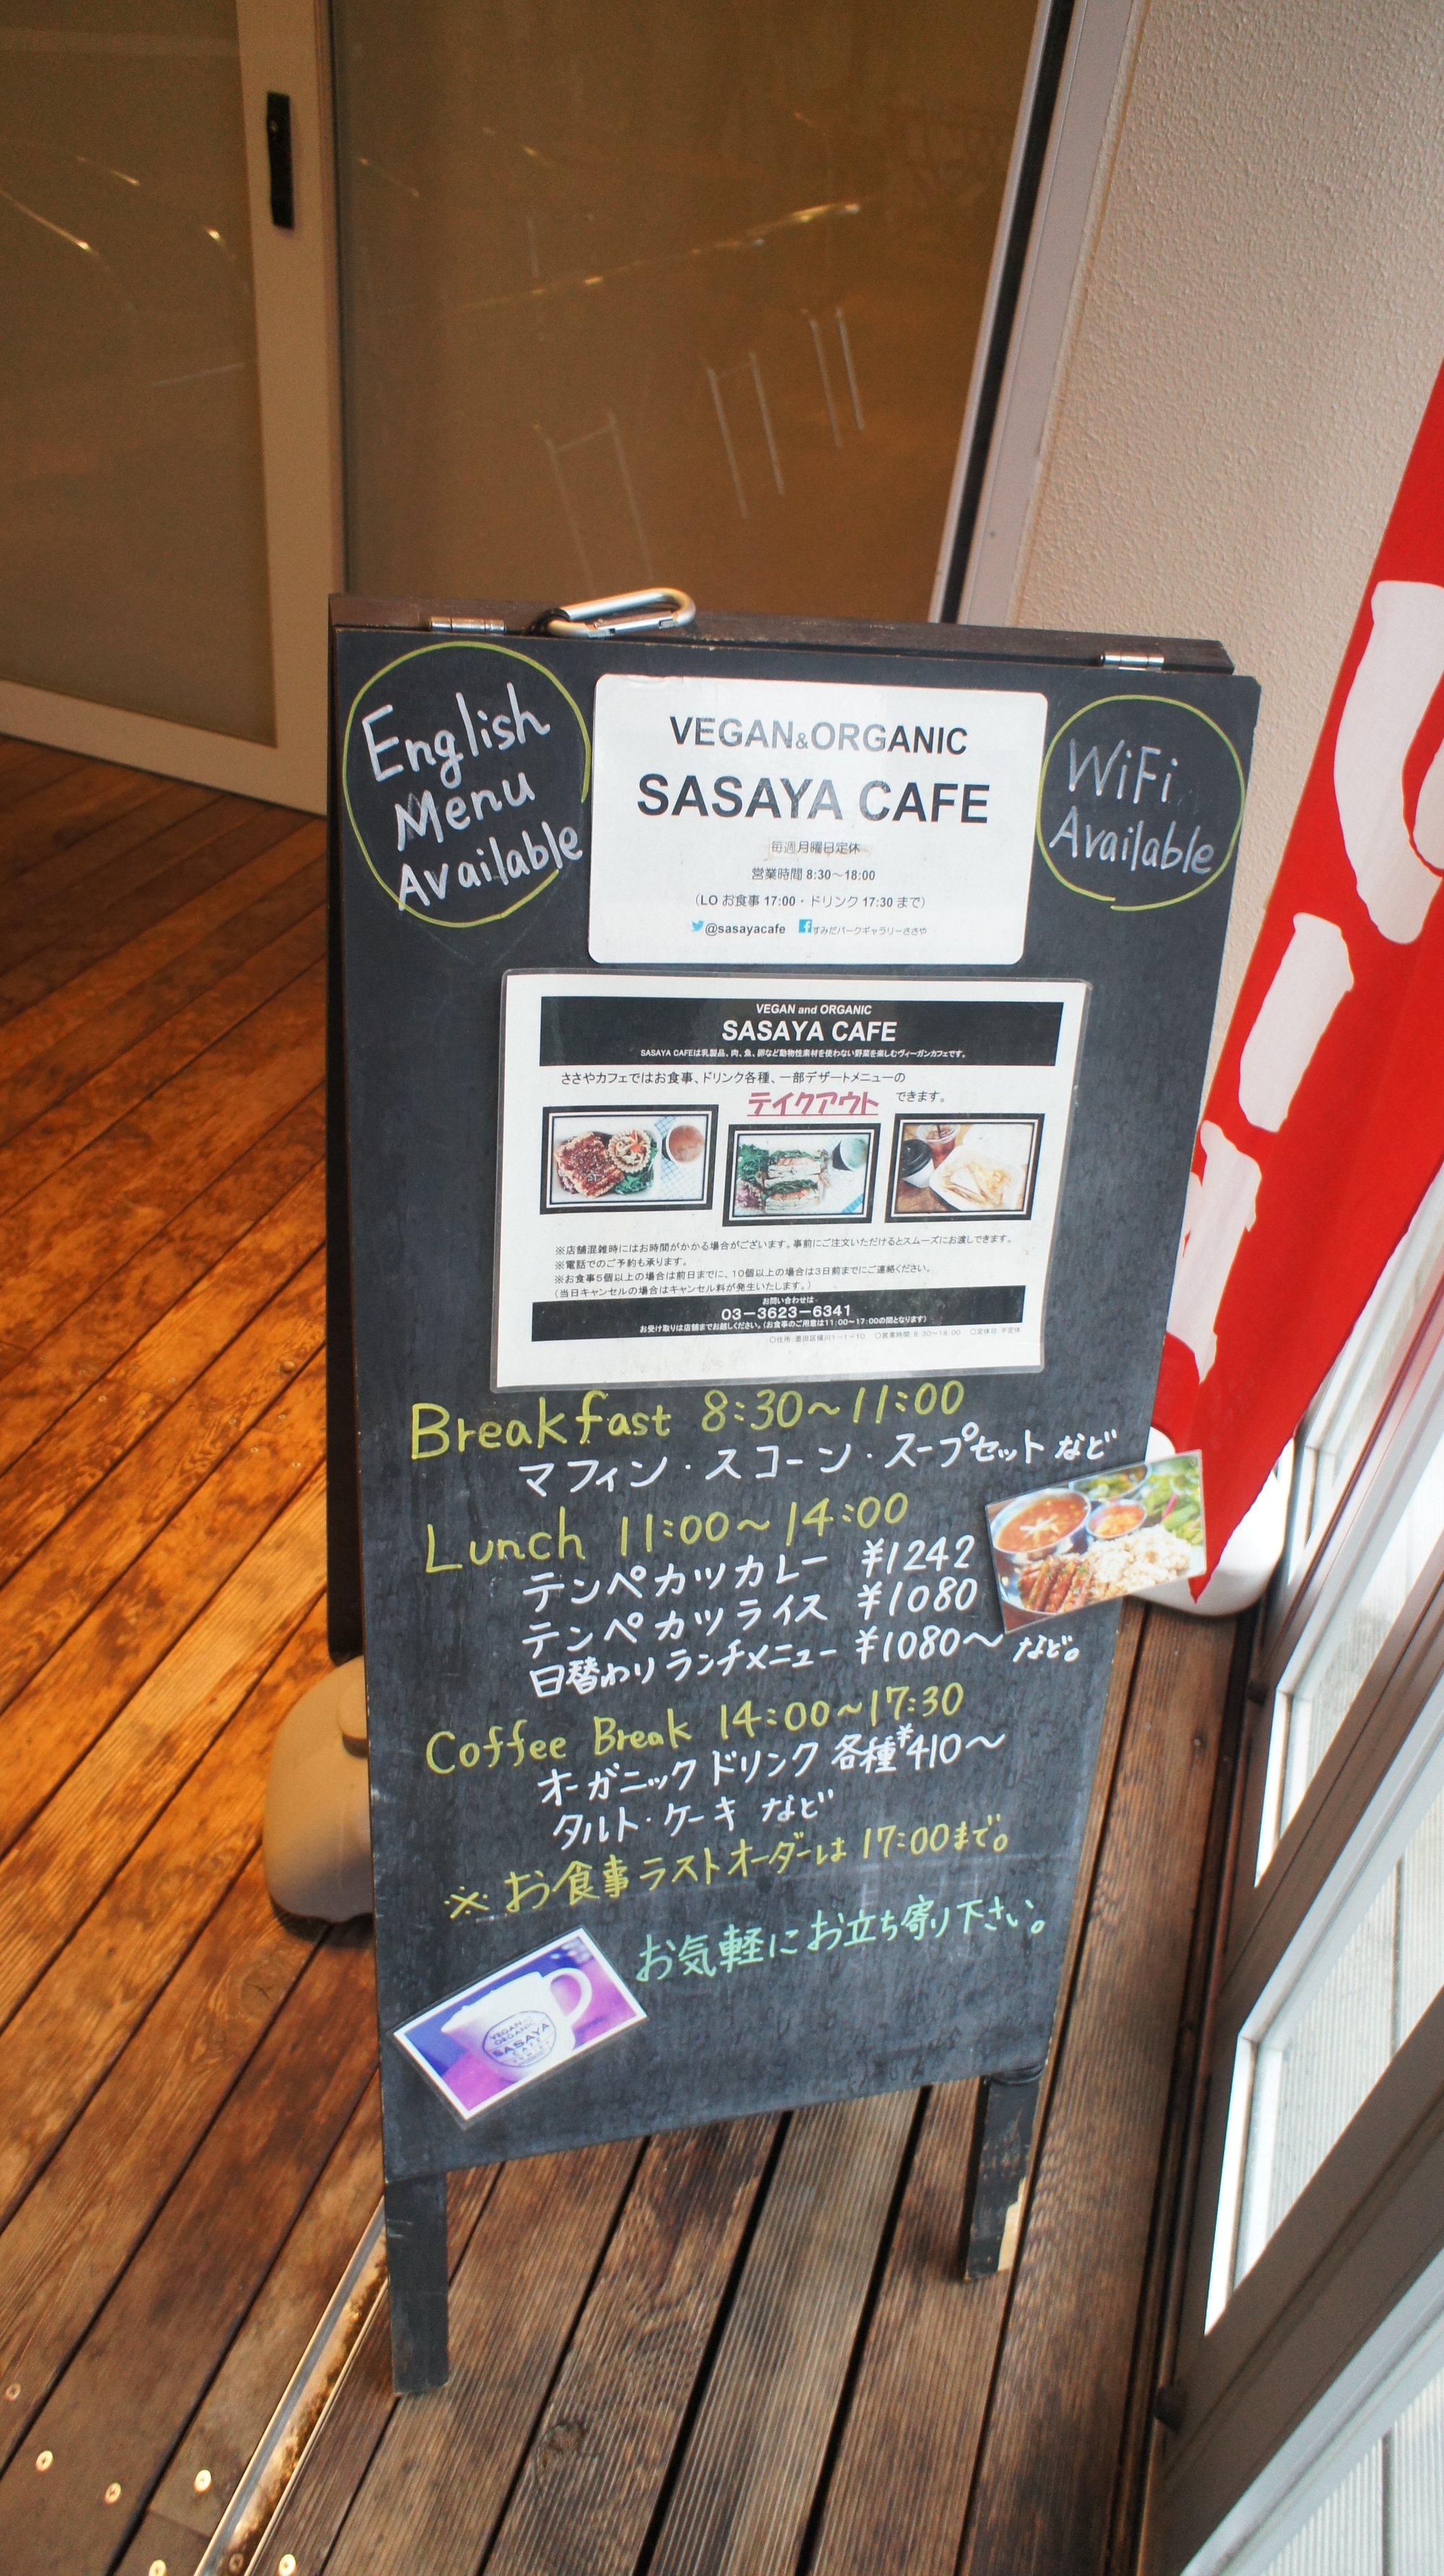 English
Menu
Available
VEGAN&ORGANIC
SASAYA CAFE
毎週月曜日定休
営業時間 8:30～18:00
（LO お食事 17:00・ドリンク 17:30 まで）
@sasayacafe すみだパークギャラリーささや
WiFi
Available
VEGAN and ORGANIC
SASAYA CAFE
SASAYA CAFEは乳製品、肉、魚、卵など動物性素材を使わない野菜を楽しむヴィーガンカフェです。
ささやカフェではお食事、ドリンク各種、一部デザートメニューの
テイクアウト できます。
※店舗混雑時にはお時間がかかる場合がございます。事前にご注文いただけるとスムーズにお渡しできます。
※電話でのご予約も承ります。
※お食事5個以上の場合は前日までに、10個以上の場合は3日前までにご連絡ください。
（当日キャンセルの場合はキャンセル料が発生いたします。）
お問い合わせは
03－3623－6341
お受け取りは店舗までお越しください。（お食事のご用意は11:00～17:00の間となります）
○住所:墨田区横川1－1－10 ○営業時間:8:30～18:00 ○定休日:不定休
Breakfast 8:30～11:00
マフィン・スコーン・スープセット など
Lunch 11:00～14:00
テンペカツカレー ¥1242
テンペカツライス ¥1080
日替わりランチメニュー ¥1080～ など。
Coffee Break 14:00～17:30
オーガニックドリンク 各種¥410～
タルト・ケーキ など
※お食事ラストオーダーは 17:00まで。
お気軽にお立ち寄り下さい。
VEGAN
ORGANIC
SASAYA
CAFE